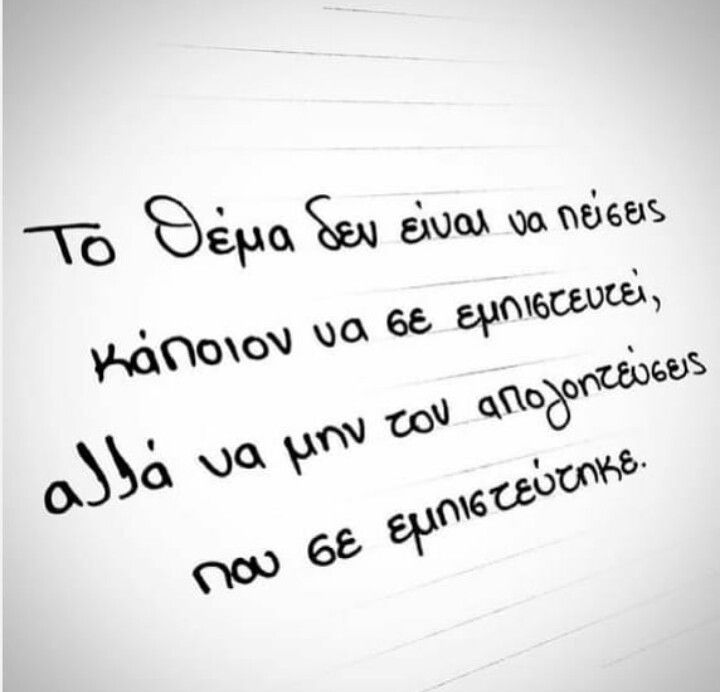 Το θέμα δεν είναι να πείσεις
κάποιον να σε εμπιστευτεί,
αλλά να μην τον απολοητεύσεις
που σε εμπιστεύτηκε.